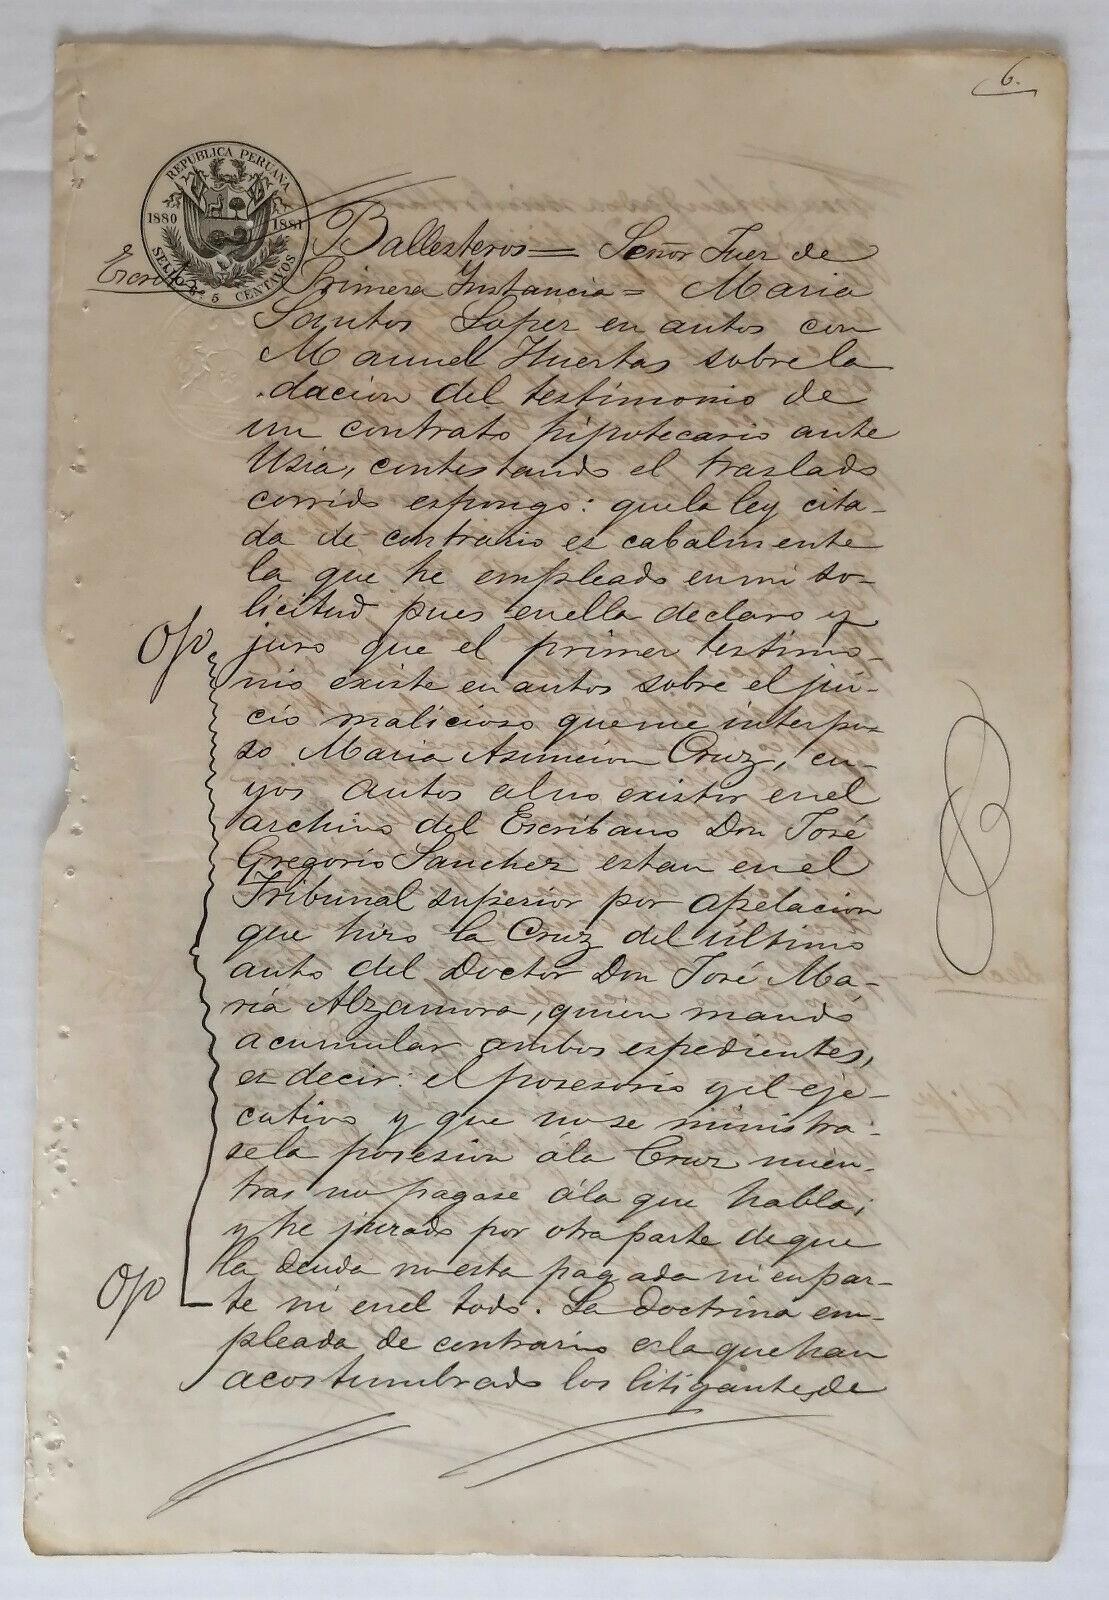 6.
REPUBLICA PERUANA
1880 1881
SELLO 6º 5 CENTAVOS
Escrito
Ballesteros = Señor Juez de
Primera Instancia = Maria
Santos Lopez en autos con
Manuel Huertas sobre la
dacion del testimonio de
un contrato hipotecario ante
Usia, contestando el traslado
corrido espongo: que la ley cita-
da de contrario es cabalmente
la que he empleado en mi so-
licitud pues en ella declaro y
juro que el primer testimo-
nio existe en autos sobre el jui-
cio malicioso que me interpu-
so Maria Asuncion Cruz, cu-
yos autos al no existir en el
archivo del Escribano Don José
Gregorio Sanchez estan en el
Tribunal superior por apelacion
que hizo la Cruz del último
auto del Doctor Don José Ma-
ría Alzamora, quien mandó
acumular ambos espedientes,
es decir: el posesorio y el eje-
cutivo y que no se ministra-
se la posesion á la Cruz mien-
tras no pagase á la que habla;
y he jurado por otra parte de que
la deuda no esta pagada ni en par-
te ni en el todo. La doctrina em-
pleada de contrario es la que han
acostumbrado los litigantes de